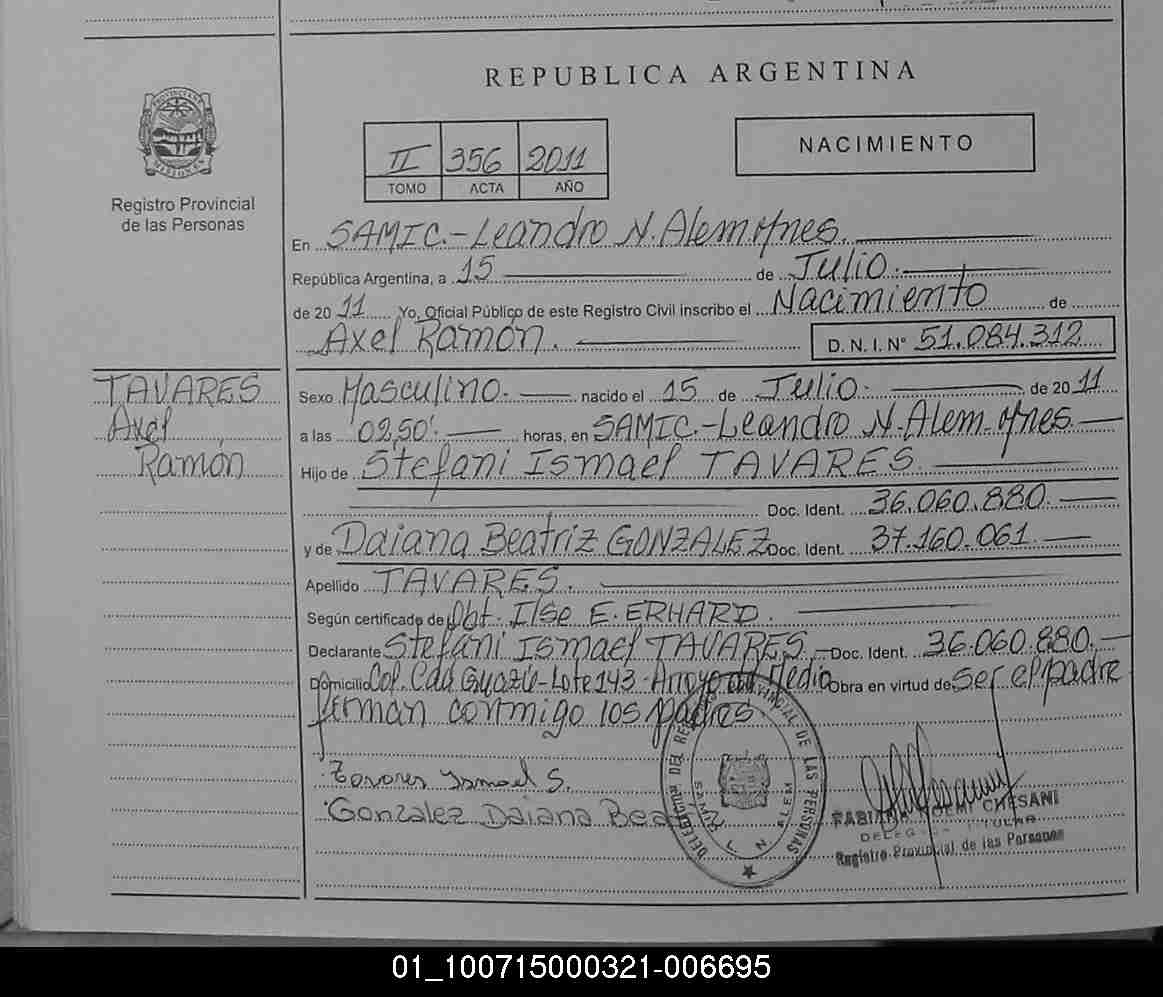 REPUBLICA ARGENTINA
PROVINCIA DE
MISIONES
Registro Provincial
de las Personas
II 356 2011
TOMO ACTA AÑO
NACIMIENTO
En SAMIC.-Leandro N. Alem Mnes.
República Argentina, a 15 de Julio.
de 2011 Yo, Oficial Público de este Registro Civil inscribo el Nacimiento de
Axel Ramón. D. N. I. N° 51.084.312
TAVARES
Axel
Ramón
Sexo Masculino. nacido el 15 de Julio. de 2011
a las 02,50'. horas, en SAMIC.-Leandro N. Alem-Mnes.
Hijo de Stefani Ismael TAVARES.
Doc. Ident. 36.060.880.
y de Daiana Beatriz GONZALEZ Doc. Ident. 37.160.061
Apellido TAVARES.
Según certificado de Obt. Ilse E. ERHARD.
Declarante Stefani Ismael TAVARES. Doc. Ident. 36.060.880.
Domicilio Col. Caá Guazú-Lote 143-Arroyo del Medio Obra en virtud de ser el padre
firman conmigo los padres.
Tavares Ismael S.
Gonzalez Daiana Beatriz
DELEGACION DEL REG. PROVINCIAL DE LAS PERSONAS
SAMIC L. N. ALEM
FABIANA NOEMI CHESANI
DELEGADA TITULAR
Registro Provincial de las Personas
01_100715000321-006695